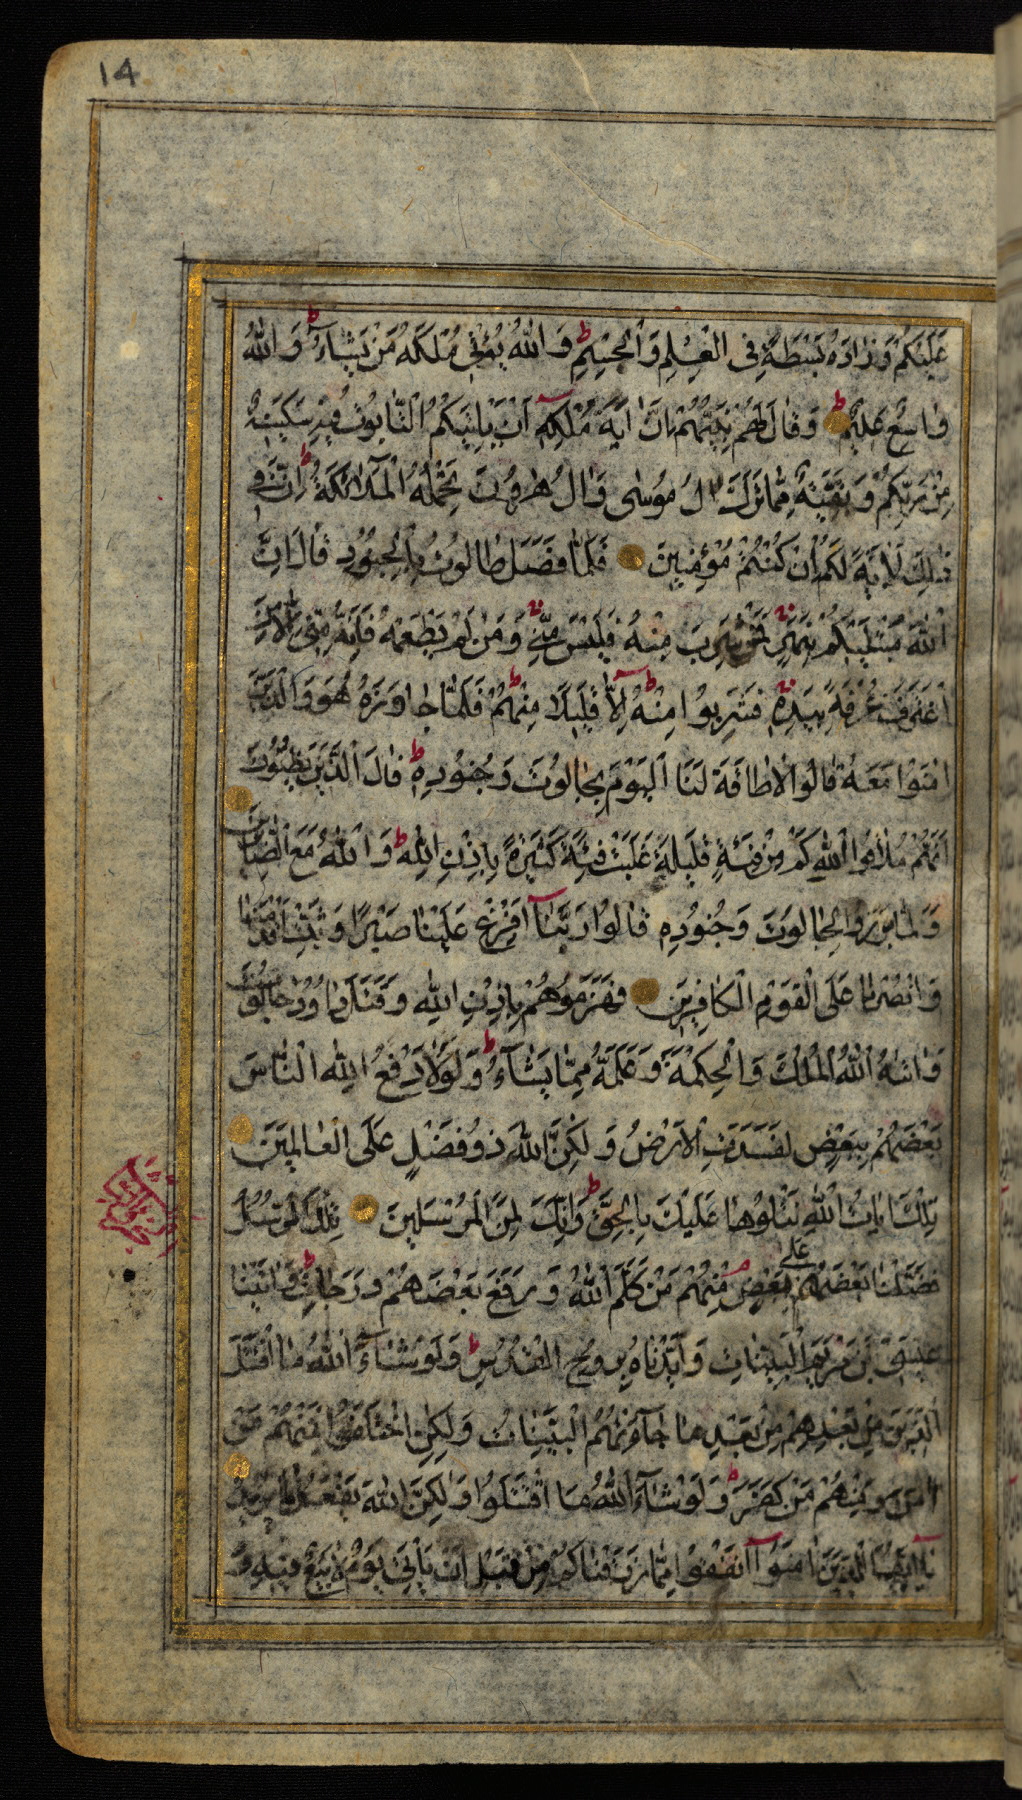 14
عَلَيْكُمْ وَزَادَهُ بَسْطَةً فِي الْعِلْمِ وَالْجِسْمِ وَاللهُ يُؤْتِي مُلْكَهُ مَنْ يَشَاءُ وَاللهُ
وَاسِعٌ عَلِيمٌ وَقَالَ لَهُمْ نَبِيُّهُمْ اِنَّ اٰيَةَ مُلْكِهِ اَنْ يَاْتِيَكُمُ التَّابُوتُ فِيهِ سَكِينَةٌ
مِنْ رَبِّكُمْ وَبَقِيَّةٌ مِمَّا تَرَكَ اٰلُ مُوسٰى وَاٰلُ هٰرُونَ تَحْمِلُهُ الْمَلٰٓائِكَةُ اِنَّ فِي
ذٰلِكَ لَاٰيَةً لَكُمْ اِنْ كُنْتُمْ مُؤْمِنِينَ فَلَمَّا فَصَلَ طَالُوتُ بِالْجُنُودِ قَالَ اِنَّ
اللهَ مُبْتَلِيكُمْ بِنَهَرٍ فَمَنْ شَرِبَ مِنْهُ فَلَيْسَ مِنِّي وَمَنْ لَمْ يَطْعَمْهُ فَاِنَّهُ مِنِّي اِلَّا مَنِ
اغْتَرَفَ غُرْفَةً بِيَدِهِ فَشَرِبُوا مِنْهُ اِلَّا قَلِيلًا مِنْهُمْ فَلَمَّا جَاوَزَهُ هُوَ وَالَّذِينَ
اٰمَنُوا مَعَهُ قَالُوا لَا طَاقَةَ لَنَا الْيَوْمَ بِجَالُوتَ وَجُنُودِهِ قَالَ الَّذِينَ يَظُنُّونَ
اَنَّهُمْ مُلَاقُوا اللهِ كَمْ مِنْ فِئَةٍ قَلِيلَةٍ غَلَبَتْ فِئَةً كَثِيرَةً بِاِذْنِ اللهِ وَاللهُ مَعَ الصَّابِرِينَ
وَلَمَّا بَرَزُوا لِجَالُوتَ وَجُنُودِهِ قَالُوا رَبَّنَا اَفْرِغْ عَلَيْنَا صَبْرًا وَثَبِّتْ اَقْدَامَنَا
وَانْصُرْنَا عَلَى الْقَوْمِ الْكَافِرِينَ فَهَزَمُوهُمْ بِاِذْنِ اللهِ وَقَتَلَ دَاوُدُ جَالُوتَ
وَاٰتٰيهُ اللهُ الْمُلْكَ وَالْحِكْمَةَ وَعَلَّمَهُ مِمَّا يَشَاءُ وَلَوْلَا دَفْعُ اللهِ النَّاسَ
بَعْضَهُمْ بِبَعْضٍ لَفَسَدَتِ الْاَرْضُ وَلٰكِنَّ اللهَ ذُو فَضْلٍ عَلَى الْعَالَمِينَ
تِلْكَ اٰيَاتُ اللهِ نَتْلُوهَا عَلَيْكَ بِالْحَقِّ وَاِنَّكَ لَمِنَ الْمُرْسَلِينَ تِلْكَ الرُّسُلُ
فَضَّلْنَا بَعْضَهُمْ عَلٰى بَعْضٍ مِنْهُمْ مَنْ كَلَّمَ اللهُ وَرَفَعَ بَعْضَهُمْ دَرَجَاتٍ وَاٰتَيْنَا
عِيسَى بْنَ مَرْيَمَ الْبَيِّنَاتِ وَاَيَّدْنَاهُ بِرُوحِ الْقُدُسِ وَلَوْ شَاءَ اللهُ مَا اقْتَتَلَ
الَّذِينَ مِنْ بَعْدِهِمْ مِنْ بَعْدِ مَا جَاءَتْهُمُ الْبَيِّنَاتُ وَلٰكِنِ اخْتَلَفُوا فَمِنْهُمْ مَنْ
اٰمَنَ وَمِنْهُمْ مَنْ كَفَرَ وَلَوْ شَاءَ اللهُ مَا اقْتَتَلُوا وَلٰكِنَّ اللهَ يَفْعَلُ مَا يُرِيدُ
يَا اَيُّهَا الَّذِينَ اٰمَنُوا اَنْفِقُوا مِمَّا رَزَقْنَاكُمْ مِنْ قَبْلِ اَنْ يَاْتِيَ يَوْمٌ لَا بَيْعٌ فِيهِ وَ